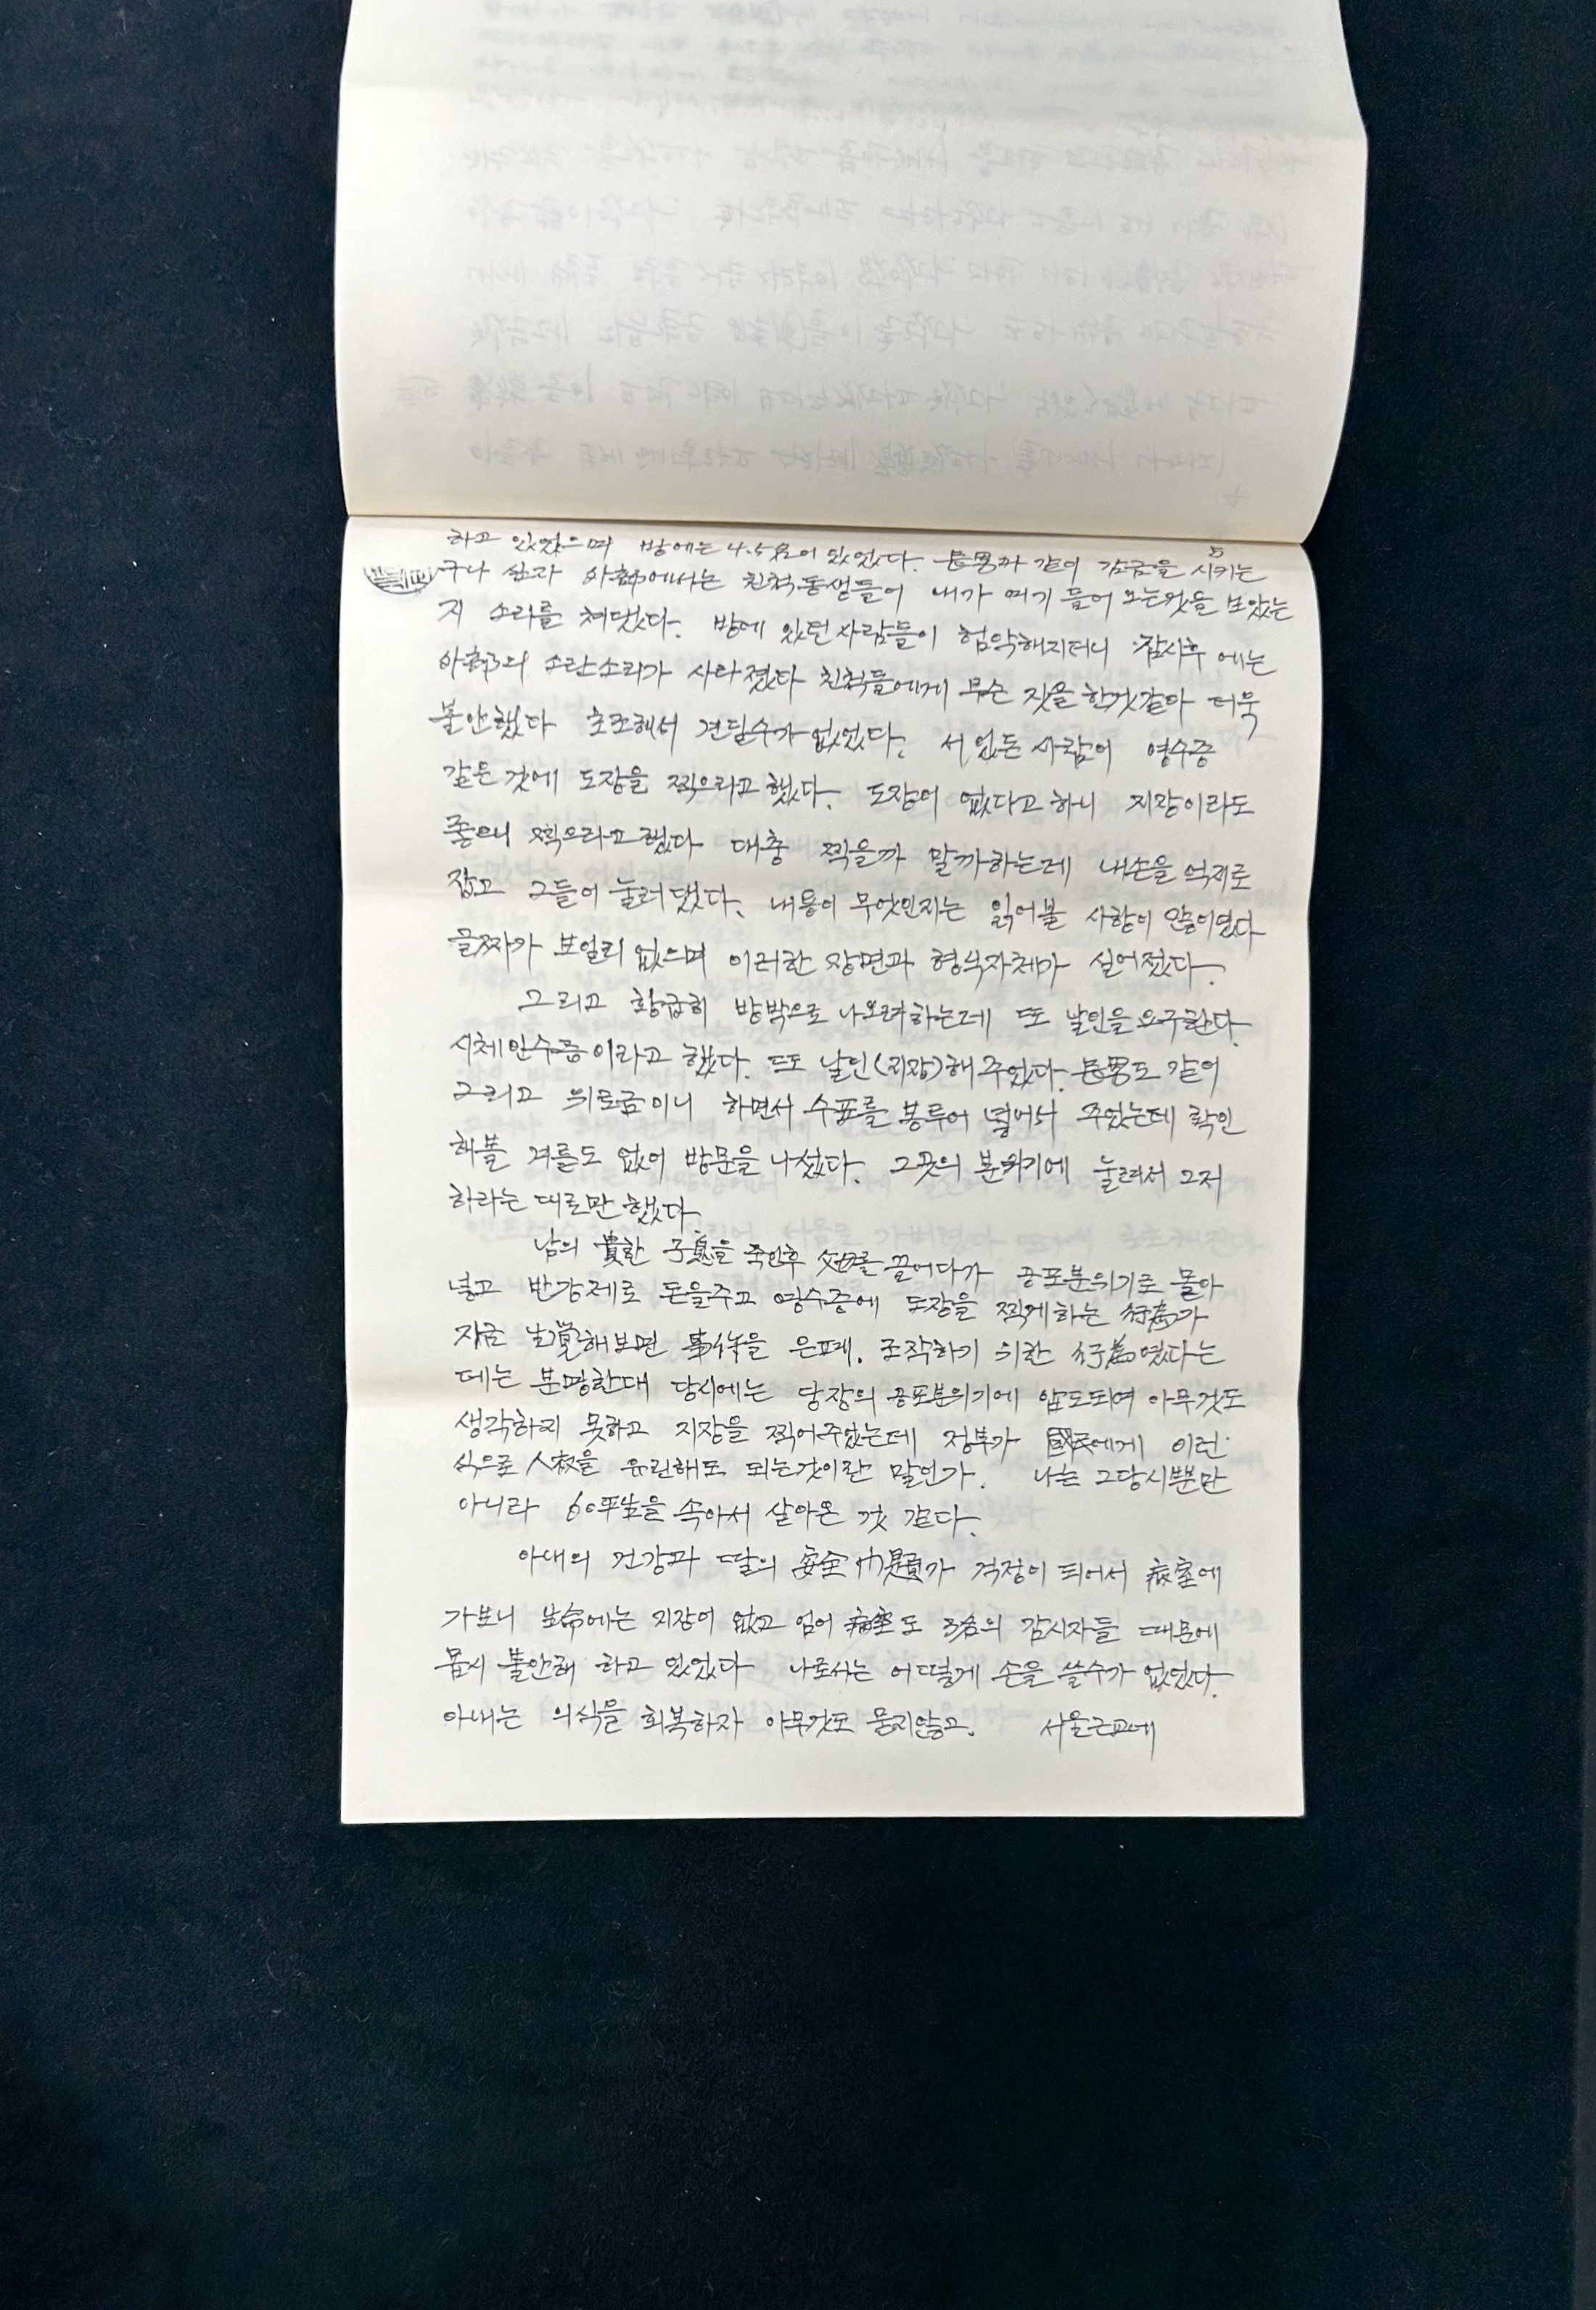 하고 있었으며 방에는 4.5名이 있었다. 長男과 같이 감금을 시키는
구나 싶자 外部에서는 친척동생들이 내가 여기 들어오는것을 보았는
지 소리를 쳐댔다. 방에 있던 사람들이 험악해지더니 잠시후 에는
外部의 소란소리가 사라졌다 친척들에게 무슨 짓을 한것같아 더욱
불안했다 초조해서 견딜수가 없었다. 서 있든 사람이 영수증
같은 것에 도장을 찍으라고 했다. 도장이 없다고 하니 지장이라도
좋으니 찍으라고 했다 대충 찍을까 말까하는데 내손을 억지로
잡고 그들이 눌러 댔다. 내용이 무엇인지는 읽어볼 사항이 안이였다
글짜가 보일리 없으며 이러한 장면과 형식자체가 싫어졌다.
그리고 황급히 방밖으로 나오려하는데 또 날인을 요구한다.
시체인수증 이라고 했다. 또 날인(지장)해 주었다. 長男도 같이
그리고 위로금이니 하면서 수표를 봉투에 넣어서 주었는데 확인
해볼 겨를도 없이 방문을 나섰다. 그곳의 분위기에 눌려서 그저
하라는 대로만 했다.
남의 貴한 子息을 죽인후 父母를 끌어다가 공포분위기로 몰아
넣고 반강제로 돈을주고 영수증에 도장을 찍게하는 行爲가
지금 生覺해보면 事件을 은페. 조작하기 위한 行爲였다는
데는 분명한대 당시에는 당장의 공포분위기에 압도되여 아무것도
생각하지 못하고 지장을 찍어주었는데 정부가 國民에게 이런
식으로 人權을 유린해도 되는것이란 말인가. 나는 그당시뿐만
아니라 60平生을 속아서 살아온 것 같다.
아내의 건강과 딸의 安全問題가 걱정이 되어서 病室에
가보니 生命에는 지장이 없고 病室도 3名의 감시자들 때문에
몹시 불안해 하고 있었다 나로서는 어떻게 손을 쓸수가 없었다.
아내는 의식을 회복하자 아무것도 묻지않고. 서울근교에